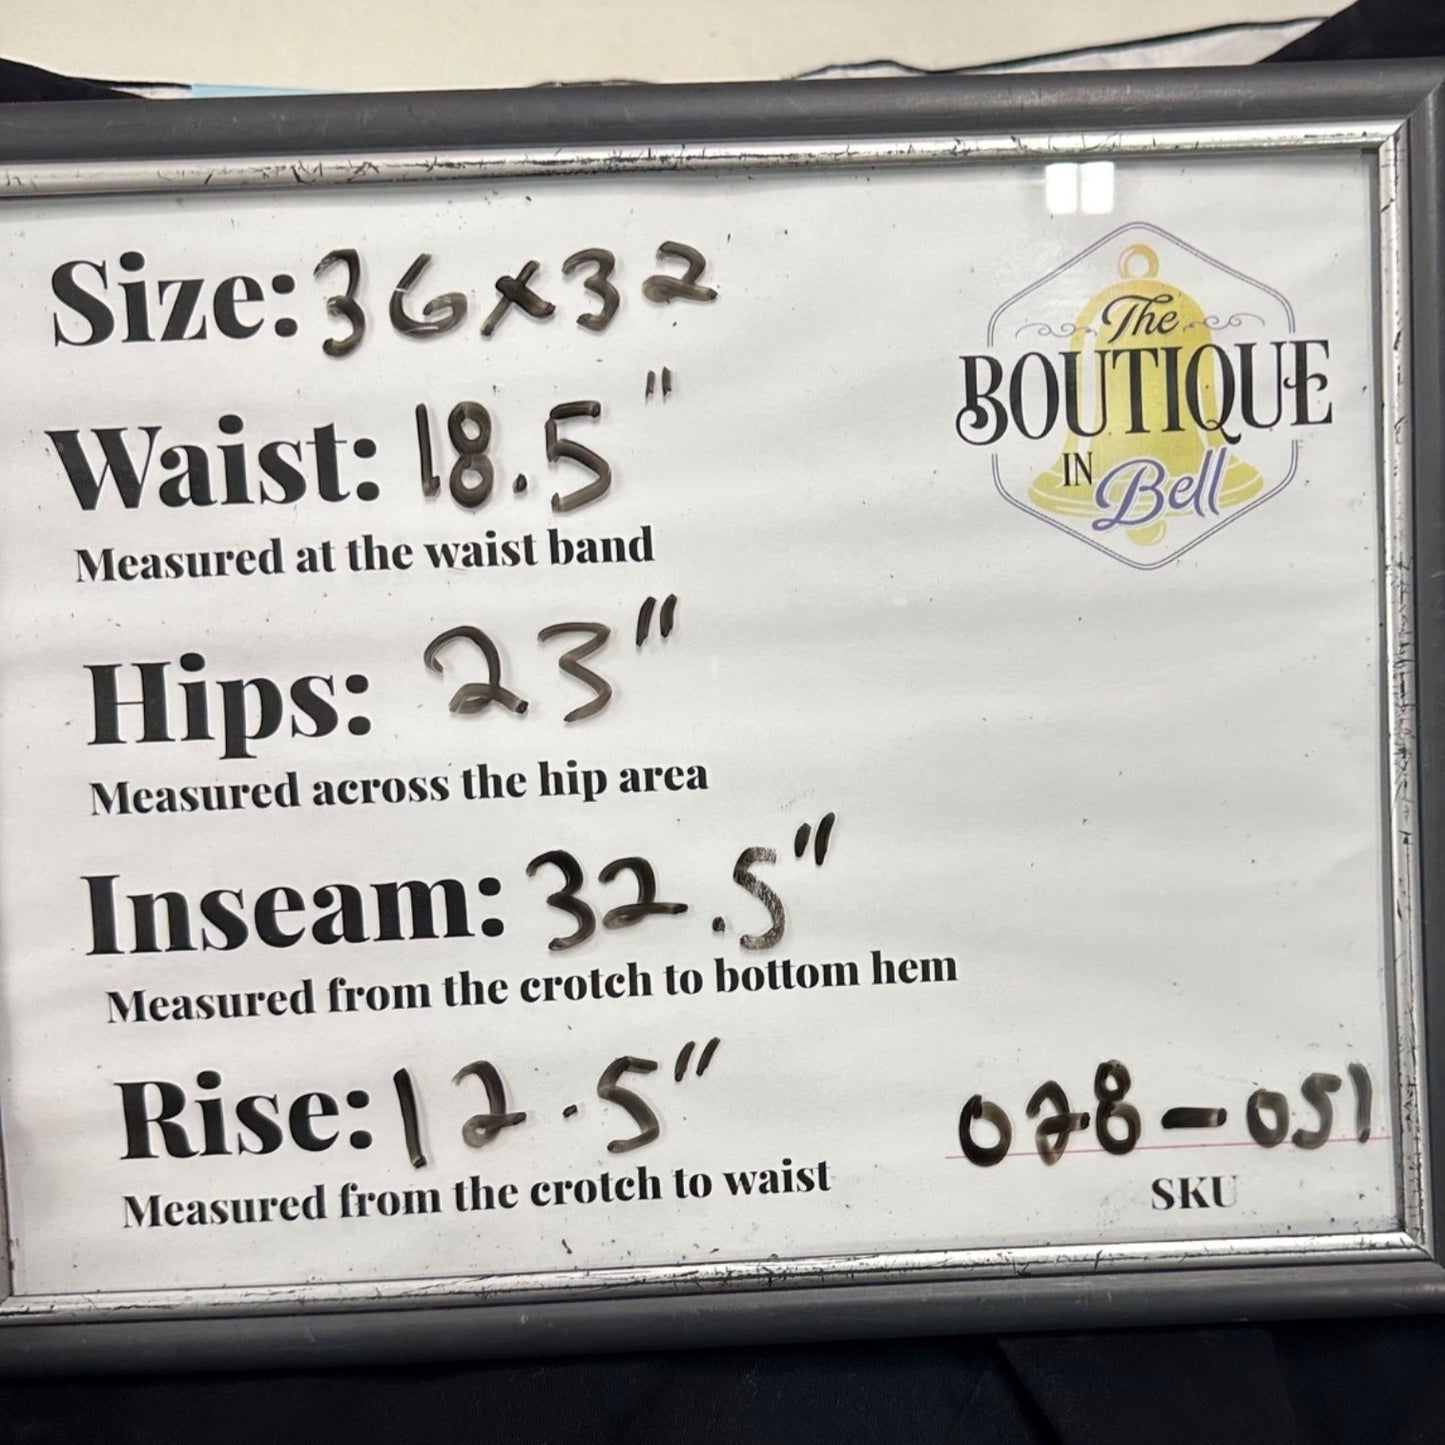 Size: 36x32
Waist: 18.5"
Measured at the waist band
Hips: 23"
Measured across the hip area
Inseam: 32.5"
Measured from the crotch to bottom hem
Rise: 12.5"
Measured from the crotch to waist
The
BOUTIQUE
IN Bell
028-051
SKU